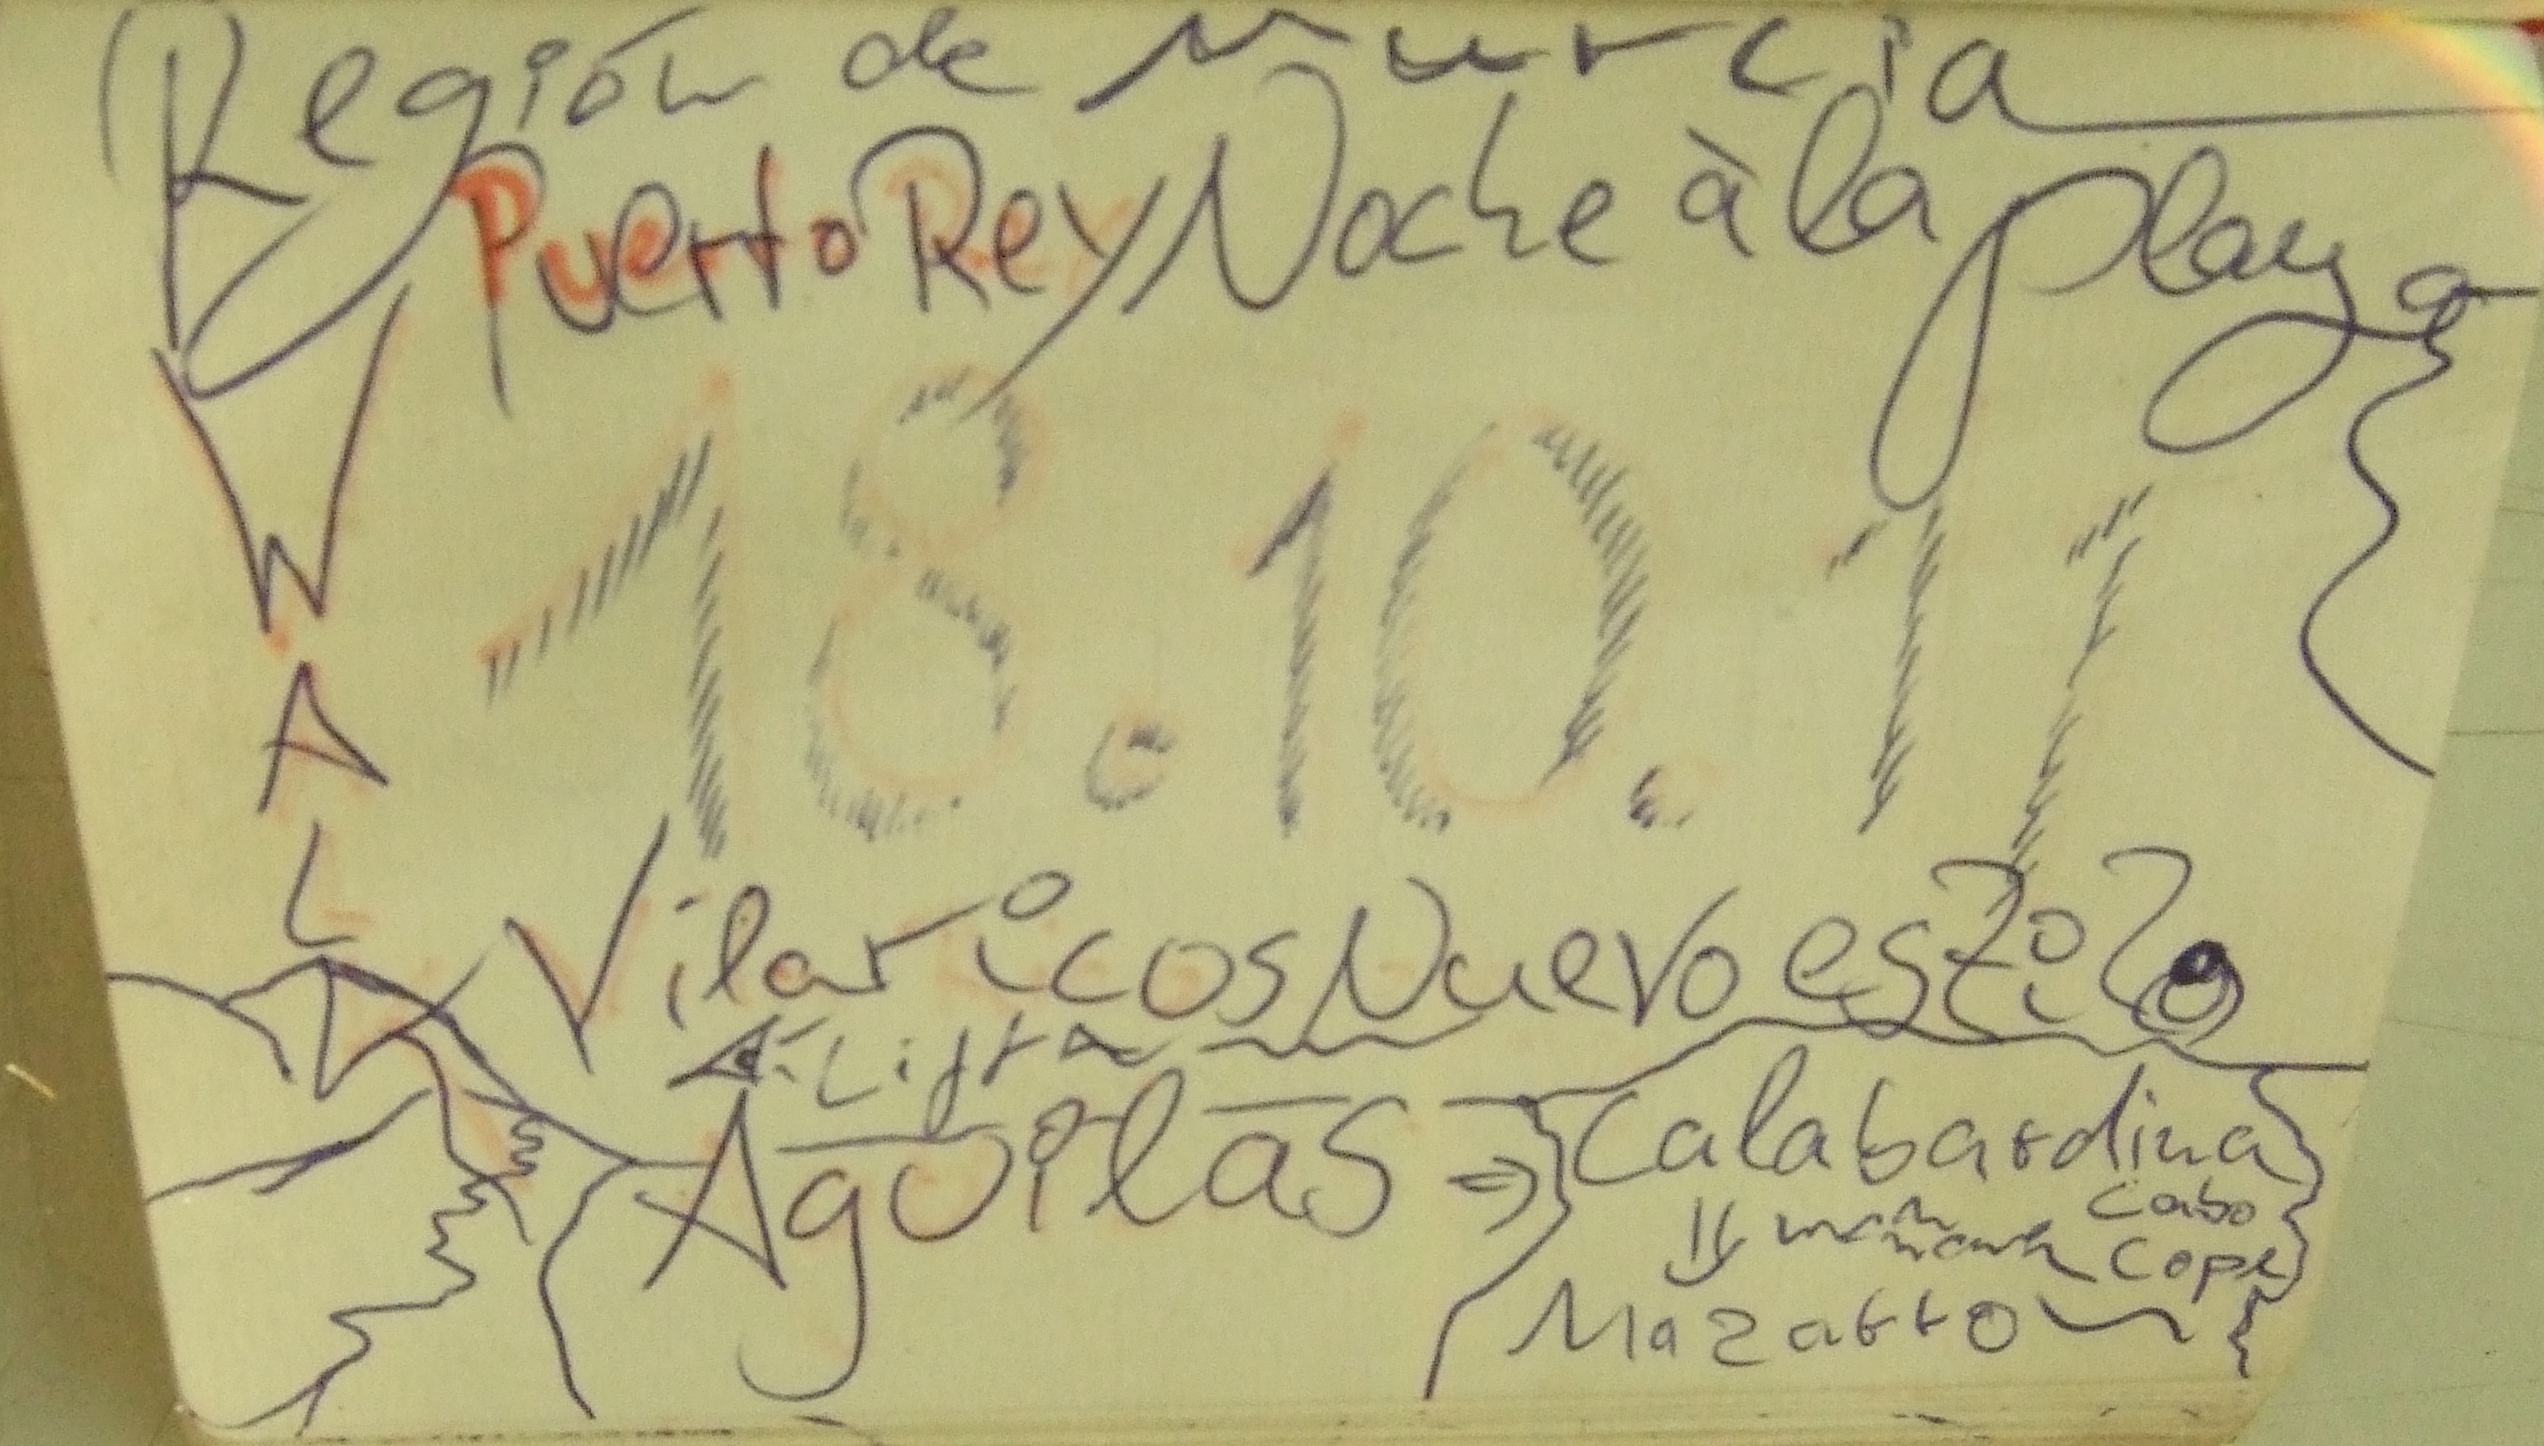 Región de Murcia
Puerto Rey Noche à la playa
WAL
18.10.17
Vilaricos Nuevo
Lift
Aguilas ⇒ Calabardina
Cabo
Cope
Mazarro